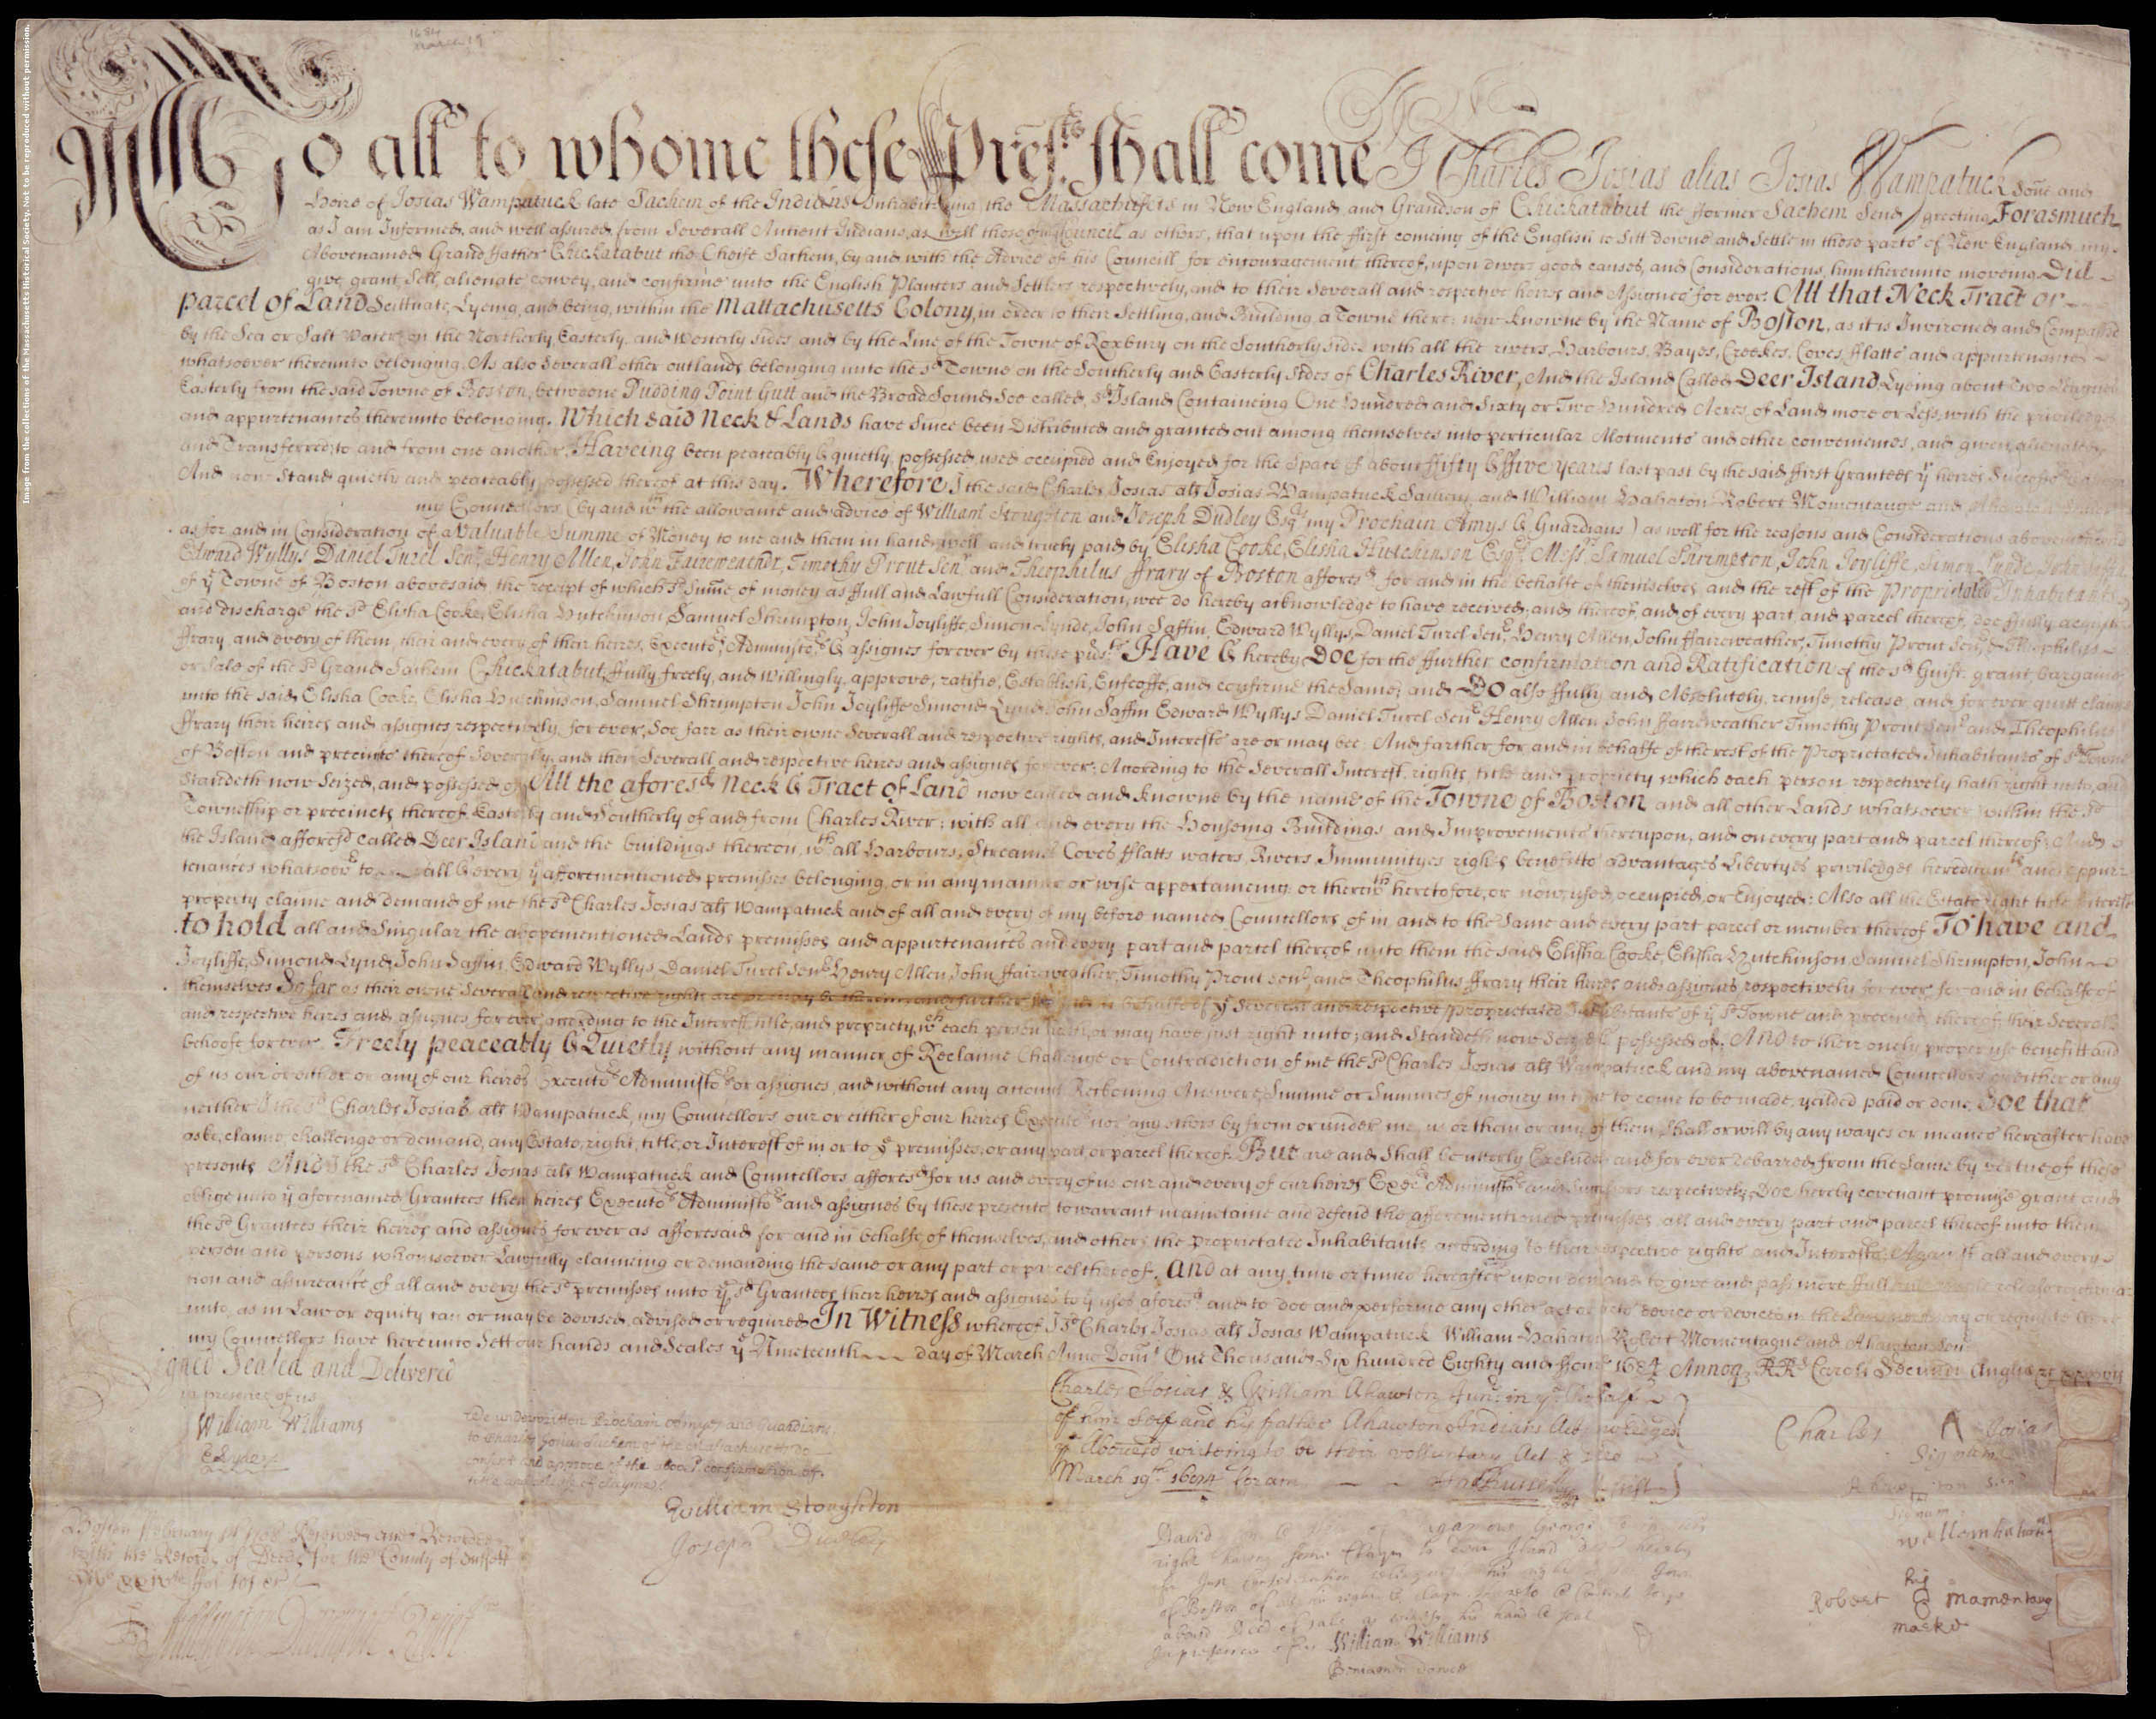 1684
March 19
To all to whome these Pres.ts shall come I Charles Josias alias Josias Wampatuck Sone and
Heire of Josias Wampatuck late Sachem of the Indians Inhabiting the Massachusets in New England, and Grandson of Chickatabut the former Sachem Send greeting, Forasmuch
as I am Informed, and well assured, from Severall Antient Indians, as well those of my Councill as others, that upon the first comeing of the English to Sitt downe and Settle in those parts of New England, my
Abovenamed Grand father Chickatabut the Cheife Sachem, by and with the Advice of his Councill for encouragement thereof, upon divers good causes, and Considerations, him thereunto moveing Did
give, grant, Sell, alienate convey, and confirme unto the English Planters and Settlers respectively, and to their Severall and respective heires and Assignes for ever. All that Neck Tract or
parcel of Land Scittuate, Lyeing, and being, within the Mattachusetts Colony, in order to their Settling, and Building a Towne there; now knowne by the Name of Boston, as it is Invironed and Compassed
by the Sea or Salt Water, on the Northerly, Easterly, and Westerly sides and by the Line of the Towne of Roxbury on the Southerly side, with all the rivers, Harbours, Bayes, Creekes, Coves, fflatts and appurtenances
whatsoever thereunto belonging, As also Severall other outlands belonging unto the sd Towne on the Southerly and Easterly Sides of Charles River, And the Island Called Deer Island Lyeing about Two Leagues
Easterly from the said Towne of Boston, betweene Pudding Point Gutt and the Broad Sound, Soe called, sd Island Containeing One hundred and Sixty or Two hundred Acres, of Land more or Less, with the priviledges
and appurtenances thereunto belonging. Which said Neck & Lands have Since been Distributed and granted out among themselves into perticular Alotments and other conveniences, and given, alienated
and Transferred, to and from one another, Haveing been peaceably & quietly possessed, used, occupied and Enjoyed for the Space of about ffifty & ffive years last past by the said ffirst Grantees yr heires Successors
And now Stand quietly and peaceably possessed thereof at this day. Wherefore I the said Charles Josias als Josias Wampatuck Sachem, and William Hahaton Robert Momentauge and
my Councellors (by and wth the allowance and advice of William Stoughton and Joseph Dudley Esqrs my Prochain Amys & Guardians) as well for the reasons and Considerations abovementioned
as for and in Consideration of a Valuable Summe of Money to me and them in hand well and truely paid by Elisha Cooke, Elisha Hutchinson Esqrs Messrs Samuel Shrimpton, John Joyliffe, Simon Lynde, John Saffin
Edward Wyllys Daniel Turel Senr Henry Allen, John Faireweather, Timothy Prout Senr and Theophilus ffrary of Boston affores.d for and in the behalfe of themselves, and the rest of the Proprietated Inhabitants
of ye Towne of Boston abovesaid, the receipt of which sd Sume of money as ffull and Lawfull Consideration, wee do hereby acknowledge to have received, and thereof, and of every part and parcel thereof, doe ffully acquitt
and discharge the sd Elisha Cooke, Elisha Hutchinson Samuel Shrimpton, John Joyliffe, Simon Lynde, John Saffin, Edward Wyllys, Daniel Turel Senr, Henry Allen, John ffaireweather, Timothy Prout Senr, & Theophilus
ffrary and every of them, their and every of their heires, Executors, Administors & assignes forever by these prsts Have & hereby Doe for the ffurther confirmation and Ratification of the sd Guift, grant, bargaine
or Sale of the sd Grand Sachem Chickatabut, ffully, freely, and willingly, approve, ratifie, Establish, Enfeoffe, and confirme the Same; and Do also ffully and Absolutely, remise, release, and for ever quitt claime
unto the said Elisha Cooke, Elisha Hutchinson, Samuel Shrimpton John Joyliffe Simond Lynd John Saffin Edward Wyllys Daniel Turel Senr Henry Allen John ffaireweather Timothy Prout Senr and Theophilus
ffrary their heires and assignes respectively, for ever, Soe farr as their owne Severall and respective rights, and Interests are or may bee: And farther for and in behalfe of the rest of the Proprietated Inhabitants of sd Towne
of Boston and precincts thereof Severally, and their Severall and respective heires and assignes for ever; According to the Severall Interest, rights, title and propriety which each person respectively hath right unto, and
Standeth now Seized, and possessed of All the afores.d Neck & Tract of Land now called and knowne by the name of the Towne of Boston and all other Lands whatsoever within the sd
Township or precincts thereof Easterly and Southerly of and from Charles River; with all and every the Houseing Buildings, and Improvements thereupon, and on every part and parcel thereof; And
the Island affores.d called Deer Island and the buildings thereon, wth all Harbours, Streames Coves fflatts waters, Rivers, Immunityes rights, benefitts advantages Libertyes priviledges hereditamts and appur
tenances whatsoever to all & every ye afforementioned premisses belonging, or in any manner or wise appertaineing or therewth heretofore, or now used, occupied, or Enjoyed: Also all the Estate right title Interest
property claime and demand of me the sd Charles Josias als Wampatuck and of all and every of my before named Councellors of in and to the Same and every part parcel or member thereof To have and
to hold all and Singular the abovementioned Lands premisses and appurtenances and every part and parcel thereof unto them the said Elisha Cooke, Elisha Hutchinson, Samuel Shrimpton, John
Joyliffe, Simond Lynd, John Saffin, Edward Wyllys, Daniel Turel Senr Henry Allen, John ffaireweather, Timothy Prout Senr and Theophilus ffrary their heires and assignes respectively for ever for and in behalfe of
themselves So far as their owne Severall and respective rights are or may be therein, and further for and in behalfe of ye Severall and respective proprietated Inhabitants of ye sd Towne and precincts thereof their Severall
and respective heires and assignes for ever, according to the Interest, title, and propriety, wch each person hath, or may have just right unto; and Standeth now Seized & possessed of. And to their onely proper use benefitt and
behoofe for ever. Freely peaceably & Quietly without any manner of Reclaime Challenge or Contradiction of me the sd Charles Josias als Wampatuck and my abovenamed Councellors or either or any
of us our or either or any of our heires Executors Administors or assignes, and without any account Reckoning Answere, Summe or Summes of money in time to come to be made, yeilded paid or done, Soe that
neither I the sd Charles Josias als Wampatuck, my Councellors our or either of our heires Executors nor any others by from or under me, us or them or any of them shall or will by any wayes or meanes hereafter have
aske, claime, challenge or demand, any Estate, right, title, or Interest of in or to ye premisses, or any part or parcel thereof. But are and Shall be utterly Excluded and for ever debarred from the Same by vertue of these
presents And I the sd Charles Josias als Wampatuck and Councellors affores.d for us and every of us our and every of our heires Execrs Administors and Successors respectively, Doe hereby covenant promise grant and
oblige unto ye aforenamed Grantees their heires Executors Administors and assignes by these presents, to warrant maintaine and defend the afforementioned premisses all and every part and parcel thereof unto them
the sd Grantees their heires and assignes for ever as afforesaid for and in behalfe of themselves, and others the proprietated Inhabitants according to their respective rights and Interests. Against all and every
person and persons whomsoever Lawfully claimeing or demanding the same or any part or parcel thereof. And at any time or times hereafter upon demand to give and pass more full and ample release confirma
tion and assureance of all and every the sd premisses unto ye sd Grantees their heires and assignes to ye uses afores.d and to doe and performe any other act or acts device or devices in the Law necessary or requisite
unto, as in Law or equity can or may be devised, advised or required In Witness whereof I sd Charles Josias als Josias Wampatuck William Hahaton Robert Momentague and Ahawton Senr
my Councellors have hereunto Sett our hands and Seales ye Nineteenth day of March Anno Domi One Thousand Six hundred Eighty and ffour 1684 Annoq RRs Caroli Secundi Angliae
Signed Sealed and Delivered
in presence of us
William Williams
We underwritten Prochain amyes and Guardians
to Charles Josias Sachem of the Massachusetts do
consent and approve of the abovesd confirmation of
title and
William Stoughton
Joseph Dudley
Charles Josias & William Ahawton Junr in ye behalf
of him Self and his father Ahawton Indians Acknowledged
ye Abovesd writeing to be their vollentary Act & deed
March 19th 1684 Coram
Charles Josias
Signum
Robert his mamentaug
marke
Boston February 1708 Received and Recorded
with the Records of Deeds for the County of Suffolk
Addington Davenport Regist.r
David
right haveing some Clayme to Deer Island
for Just consideration
of Boston of all his right & clayme
abovesd Deed of Sale, as witness his hand & seal
In presence of us William Williams
Image from the collections of the Massachusetts Historical Society. Not to be reproduced without permission.